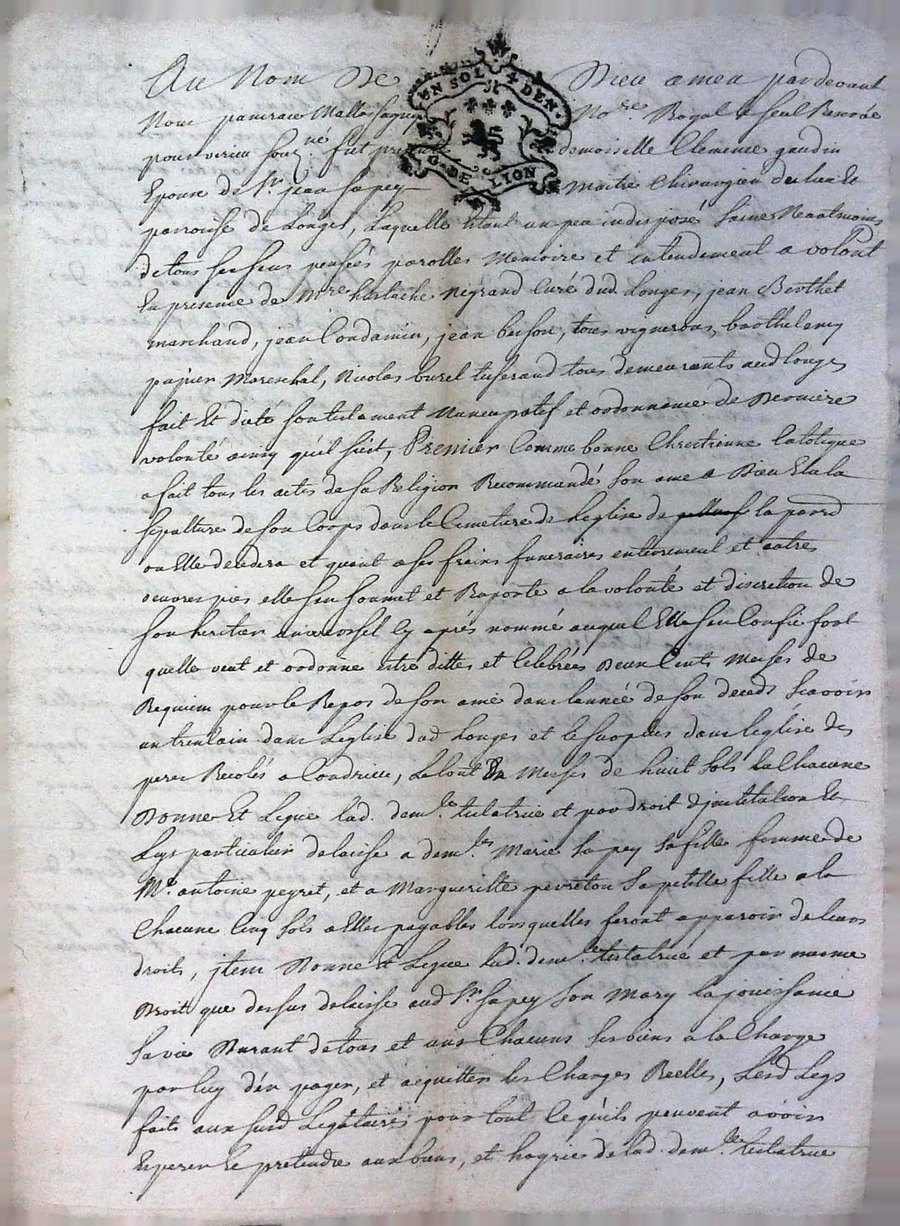 Au Nom De Dieu amen pardevant
UN SOL 4 DEN.
G. DE LION
Nous No.re Royal et seul Reservé
pour virieu souz.né fut demoiselle Clemence gaudin
Epouse de Sr. jean sapey Maitre Chirurgien du lieu Et
parroisse de Longes, Laquelle Etant un peu indisposé saine Neantmoins
de tous ses sens pensées parolles Memoire et entendement a volont
En presence de Mre. hustache negrand Curé dud. Longes, jean Berthet
marchand, jean Condamin, jean buson, tous vignerons, barthelemy
pajuer Mareschal, Nicolas burel tisserand tous demeurants aud. longes
fait Et dicté son testament Nuncupatif et ordonnance de Derniere
volonté ainsy qu'il suit, Premier Comme bonne Chrestienne Catolique
a fait tous les actes de sa Religion Recommandé Son ame a Dieu Elu la
sepulture de son Corps dans le Cimetiere de L'eglise de la parr.
ou Elle decedera et quant a ses frais funeraires enterrement et autres
oeuvres pies elle s'en soumet et Raporte a la volonté et discretion de
son heritier universsel cy après nommé auquel Elle s'en Confie fort
quelle veut et ordonne estre dittes et Celebrées Deux Cents Messes de
Requiem pour le Repos de son ame dans l'année de son deceds Scavoir
un trentain dans L'église dud. Longes et le surplus dans l'eglise des
peres Recolés a Condrieu, Messes de huit sols La Chacune
Donne Et Legue lad. dem.le testatrice et par droit d'jnstitution Et
Legs particulier delaisse a dem.les Marie Sapey sa fille femme de
Mr. antoine peyret, et a Margueritte peyretou sa petitte fille a la
Chacune Cinq sols a Elles payables lorsquelles feront apparoir de leurs
droits, jtem Donne Et Legue lad. dem.le testatrice et par mesme
Droit que dessus delaisse aud. Sr. sapey Son Mary la jouissance
sa vie Durant de tous et uns Chacuns ses biens a la Charge
par luy d'en payer, et acquitter les Charges Reelles, Lesd. Legs
faits aux susd. Legataires pour tout Ce qu'ils peuvent avoir
Esperer Et pretendre aux biens, et hoyrie de lad. dem.lle testatrice